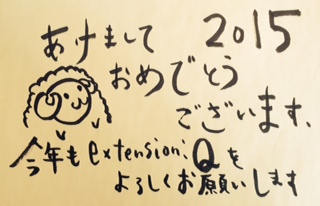 あけまして 2015
おめでとう
ございます、
今年も extension:Qを
よろしくお願いします